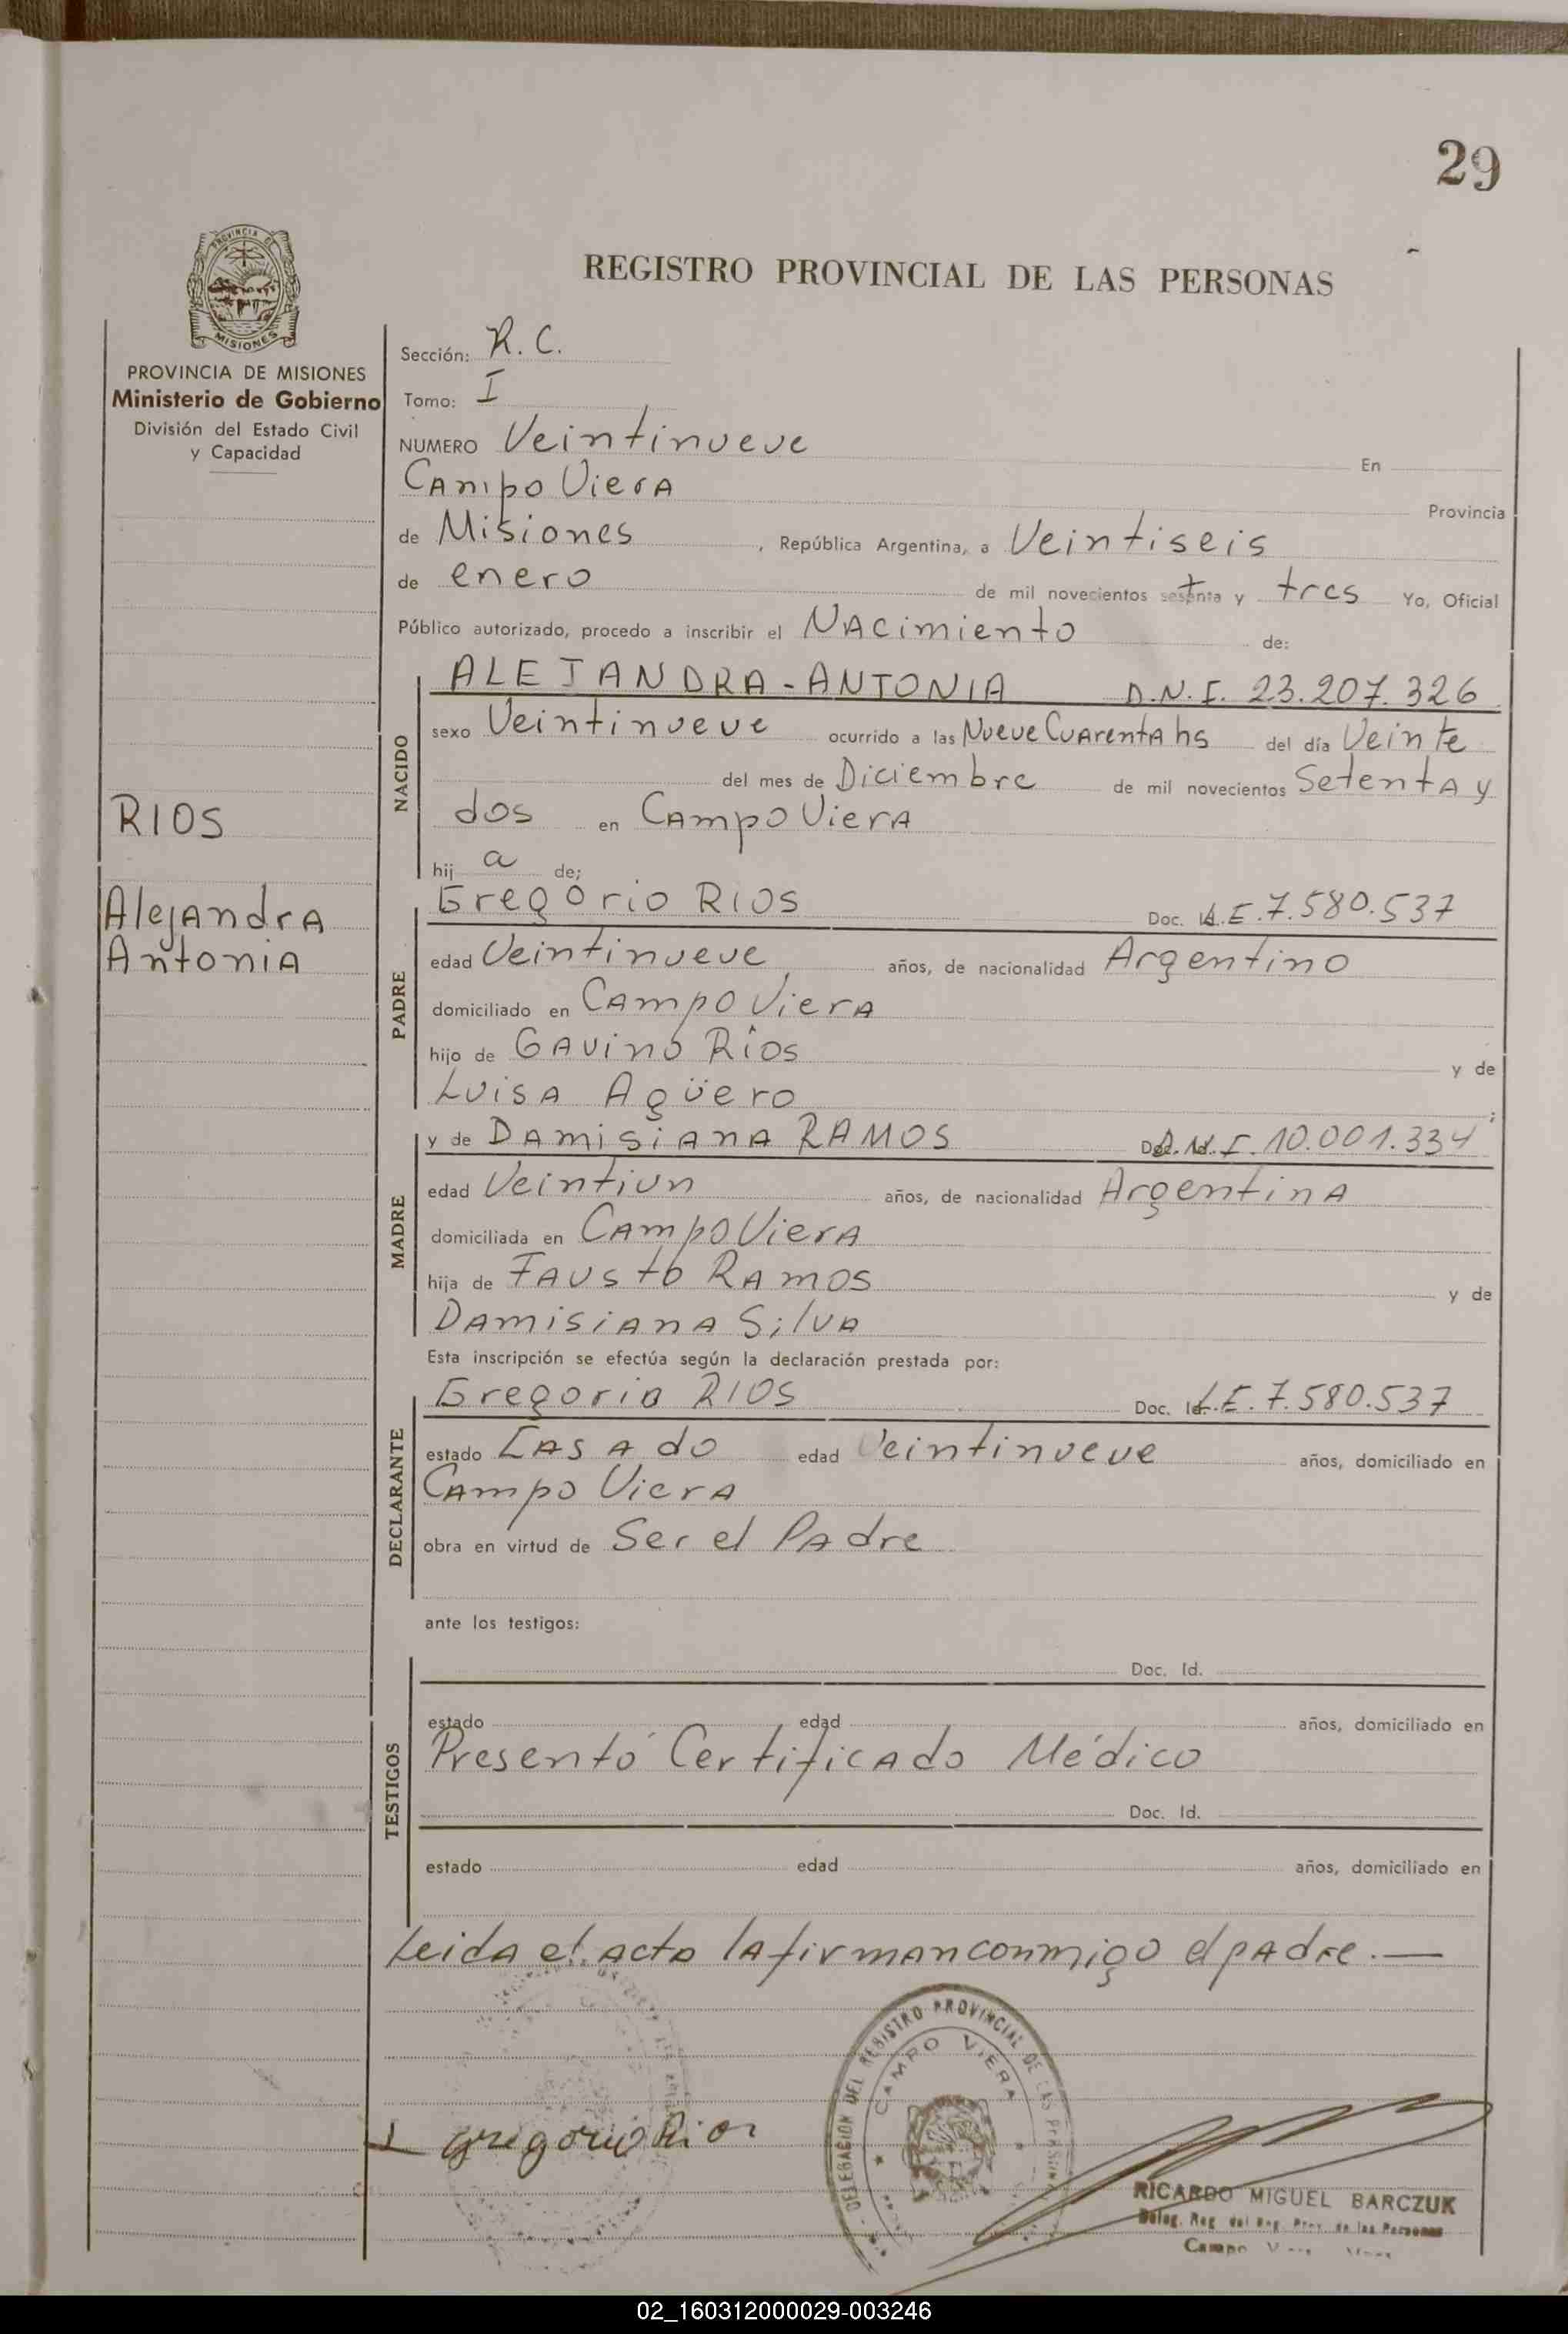 29
PROVINCIA DE
MISIONES
PROVINCIA DE MISIONES
Ministerio de Gobierno
División del Estado Civil
y Capacidad
RIOS
Alejandra
Antonia
REGISTRO PROVINCIAL DE LAS PERSONAS
Sección: R. C.
Tomo: I
NUMERO Veintinueve En
Campo Viera Provincia
de Misiones , República Argentina, a Veintiseis
de enero de mil novecientos setenta y tres Yo, Oficial
Público autorizado, procedo a inscribir el Nacimiento de:
NACIDO
ALEJANDRA-ANTONIA D.N.I. 23.207.326
sexo Veintinueve ocurrido a las Nueve Cuarenta hs del día Veinte
del mes de Diciembre de mil novecientos Setenta y
dos en Campo Viera
hij a de;
PADRE
Gregorio RIOS Doc. Id. L.E. 7.580.537
edad Veintinueve años, de nacionalidad Argentino
domiciliado en Campo Viera
hijo de Gavino Ríos y de
Luisa Agüero ;
MADRE
y de Damisiana RAMOS Doc. Id. D.N.I. 10.001.334
edad Veintiun años, de nacionalidad Argentina
domiciliada en Campo Viera
hija de Fausto Ramos y de
Damisiana Silva
Esta inscripción se efectúa según la declaración prestada por:
DECLARANTE
Gregorio RIOS Doc. Id. L.E. 7.580.537
estado Casado edad Veintinueve años, domiciliado en
Campo Viera
obra en virtud de Ser el Padre
ante los testigos:
TESTIGOS
Doc. Id.
estado edad años, domiciliado en
Presentó Certificado Médico
Doc. Id.
estado edad años, domiciliado en
Leida el acta la firman conmigo el padre.—
DELEGACION DEL REGISTRO PROVINCIAL DE LAS PERSONAS
CAMPO VIERA
Gregorio Rios
RICARDO MIGUEL BARCZUK
Deleg. Reg. del Reg. Prov. de las Personas
Campo
02_160312000029-003246